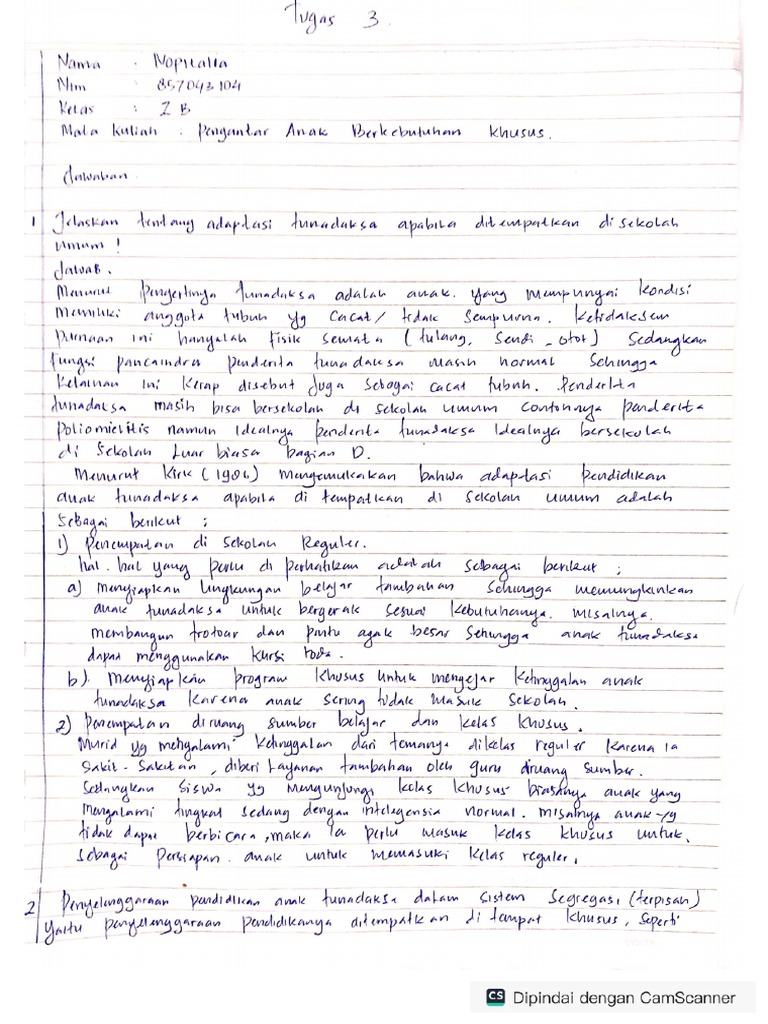 Tugas 3
Nama : Nopitalia
Nim : 857043104
Kelas : 2 B
Mata Kuliah : Pengantar Anak Berkebutuhan Khusus.
Jawaban
1 Jelaskan tentang adaptasi tunadaksa apabila ditempatkan di sekolah
umum !
Jawab.
Menurut Pengertinya tunadaksa adalah anak. yang mempunyai kondisi
Memiliki anggota tubuh yg cacat/ tidak sempurna. Ketidaksem
purnaan ini hanyalah fisik semata (tulang, sendi, otot) Sedangkan
fungsi pancaindra penderita tunadaksa masih normal Sehingga
Kelainan ini Kerap disebut Juga Sebagai cacat tubuh. Penderita
tunadaksa masih bisa bersekolah di sekolah umum contohnya penderita
poliomielitis namun Idealnya penderita tunadaksa Idealnya bersekolah
di Sekolah Luar biasa bagian D.
Menurut Kirk (1986) mengemukakan bahwa adaptasi pendidikan
anak tunadaksa apabila di tempatkan di Sekolah umum adalah
Sebagai berikut :
1) Penempatan di sekolah Reguler.
hal. hal yang perlu di perhatikan adalah sebagai berikut ;
a) menyiapkan lingkungan belajar tambahan Sehingga memungkinkan
anak tunadaksa untuk bergerak sesuai kebutuhanya. misalnya.
membangun trotoar dan pintu agak besar Sehungga anak tunadaksa
dapat menggunakan kursi roda.
b). menyiapkan program khusus untuk mengejar ketinggalan anak
tunadaksa karena anak sering tidak masuk sekolah.
2) Penempatan diruang sumber belajar dan kelas khusus.
Murid yg mengalami ketinggalan dari temanya dikelas reguler karena ia
Sakit-Sakitan, diberi layanan tambahan oleh guru diruang sumber.
Sedangkan siswa yg mengunjungi kelas khusus biasanya anak yang
mengalami tingkat sedang dengan intelegensia normal. misalnya anak yg
tidak dapat berbicara, maka ia perlu masuk kelas khusus untuk.
sebagai persiapan. anak untuk memasuki kelas reguler.
2 Penyelenggaraan pendidikan anak tunadaksa dalam sistem Segregasi (terpisah)
yaitu penyelenggaraan pendidikanya ditempatkan di tempat khusus, seperti
CS Dipindai dengan CamScanner